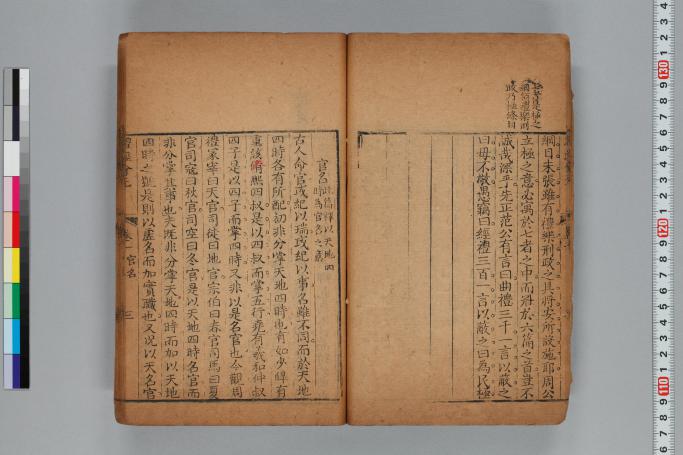 綱目未張雖有禮樂刑政之具將安所設施耶周公
立極之意必寓於七者之中而冠於六篇之首豈不
誠哉深乎先正范公有言曰曲禮三千一言以蔽之
曰毋不敬愚竊曰經禮三百一言以蔽之曰為民極
綱領禮樂刑
政乃極條目
官名
此篇釋以天地四
時為官名之義
古人命官或紀以瑞或紀以事名雖不同而於天地
四時各有所配初非分掌天地四時也有如少皞有
重該脩熙四叔是以四叔而掌五行堯有羲和仲叔
四子是以四子而掌四時又非以是名官也今觀周
禮冢宰曰天官司徒曰地官宗伯曰春官司馬曰夏
官司寇曰秋官司空曰冬官是以天地四時名官而
非分掌其事也夫既非分掌天地四時而加以天地
四時之號是則以虛名而加實職也又况以天名官
官名
三